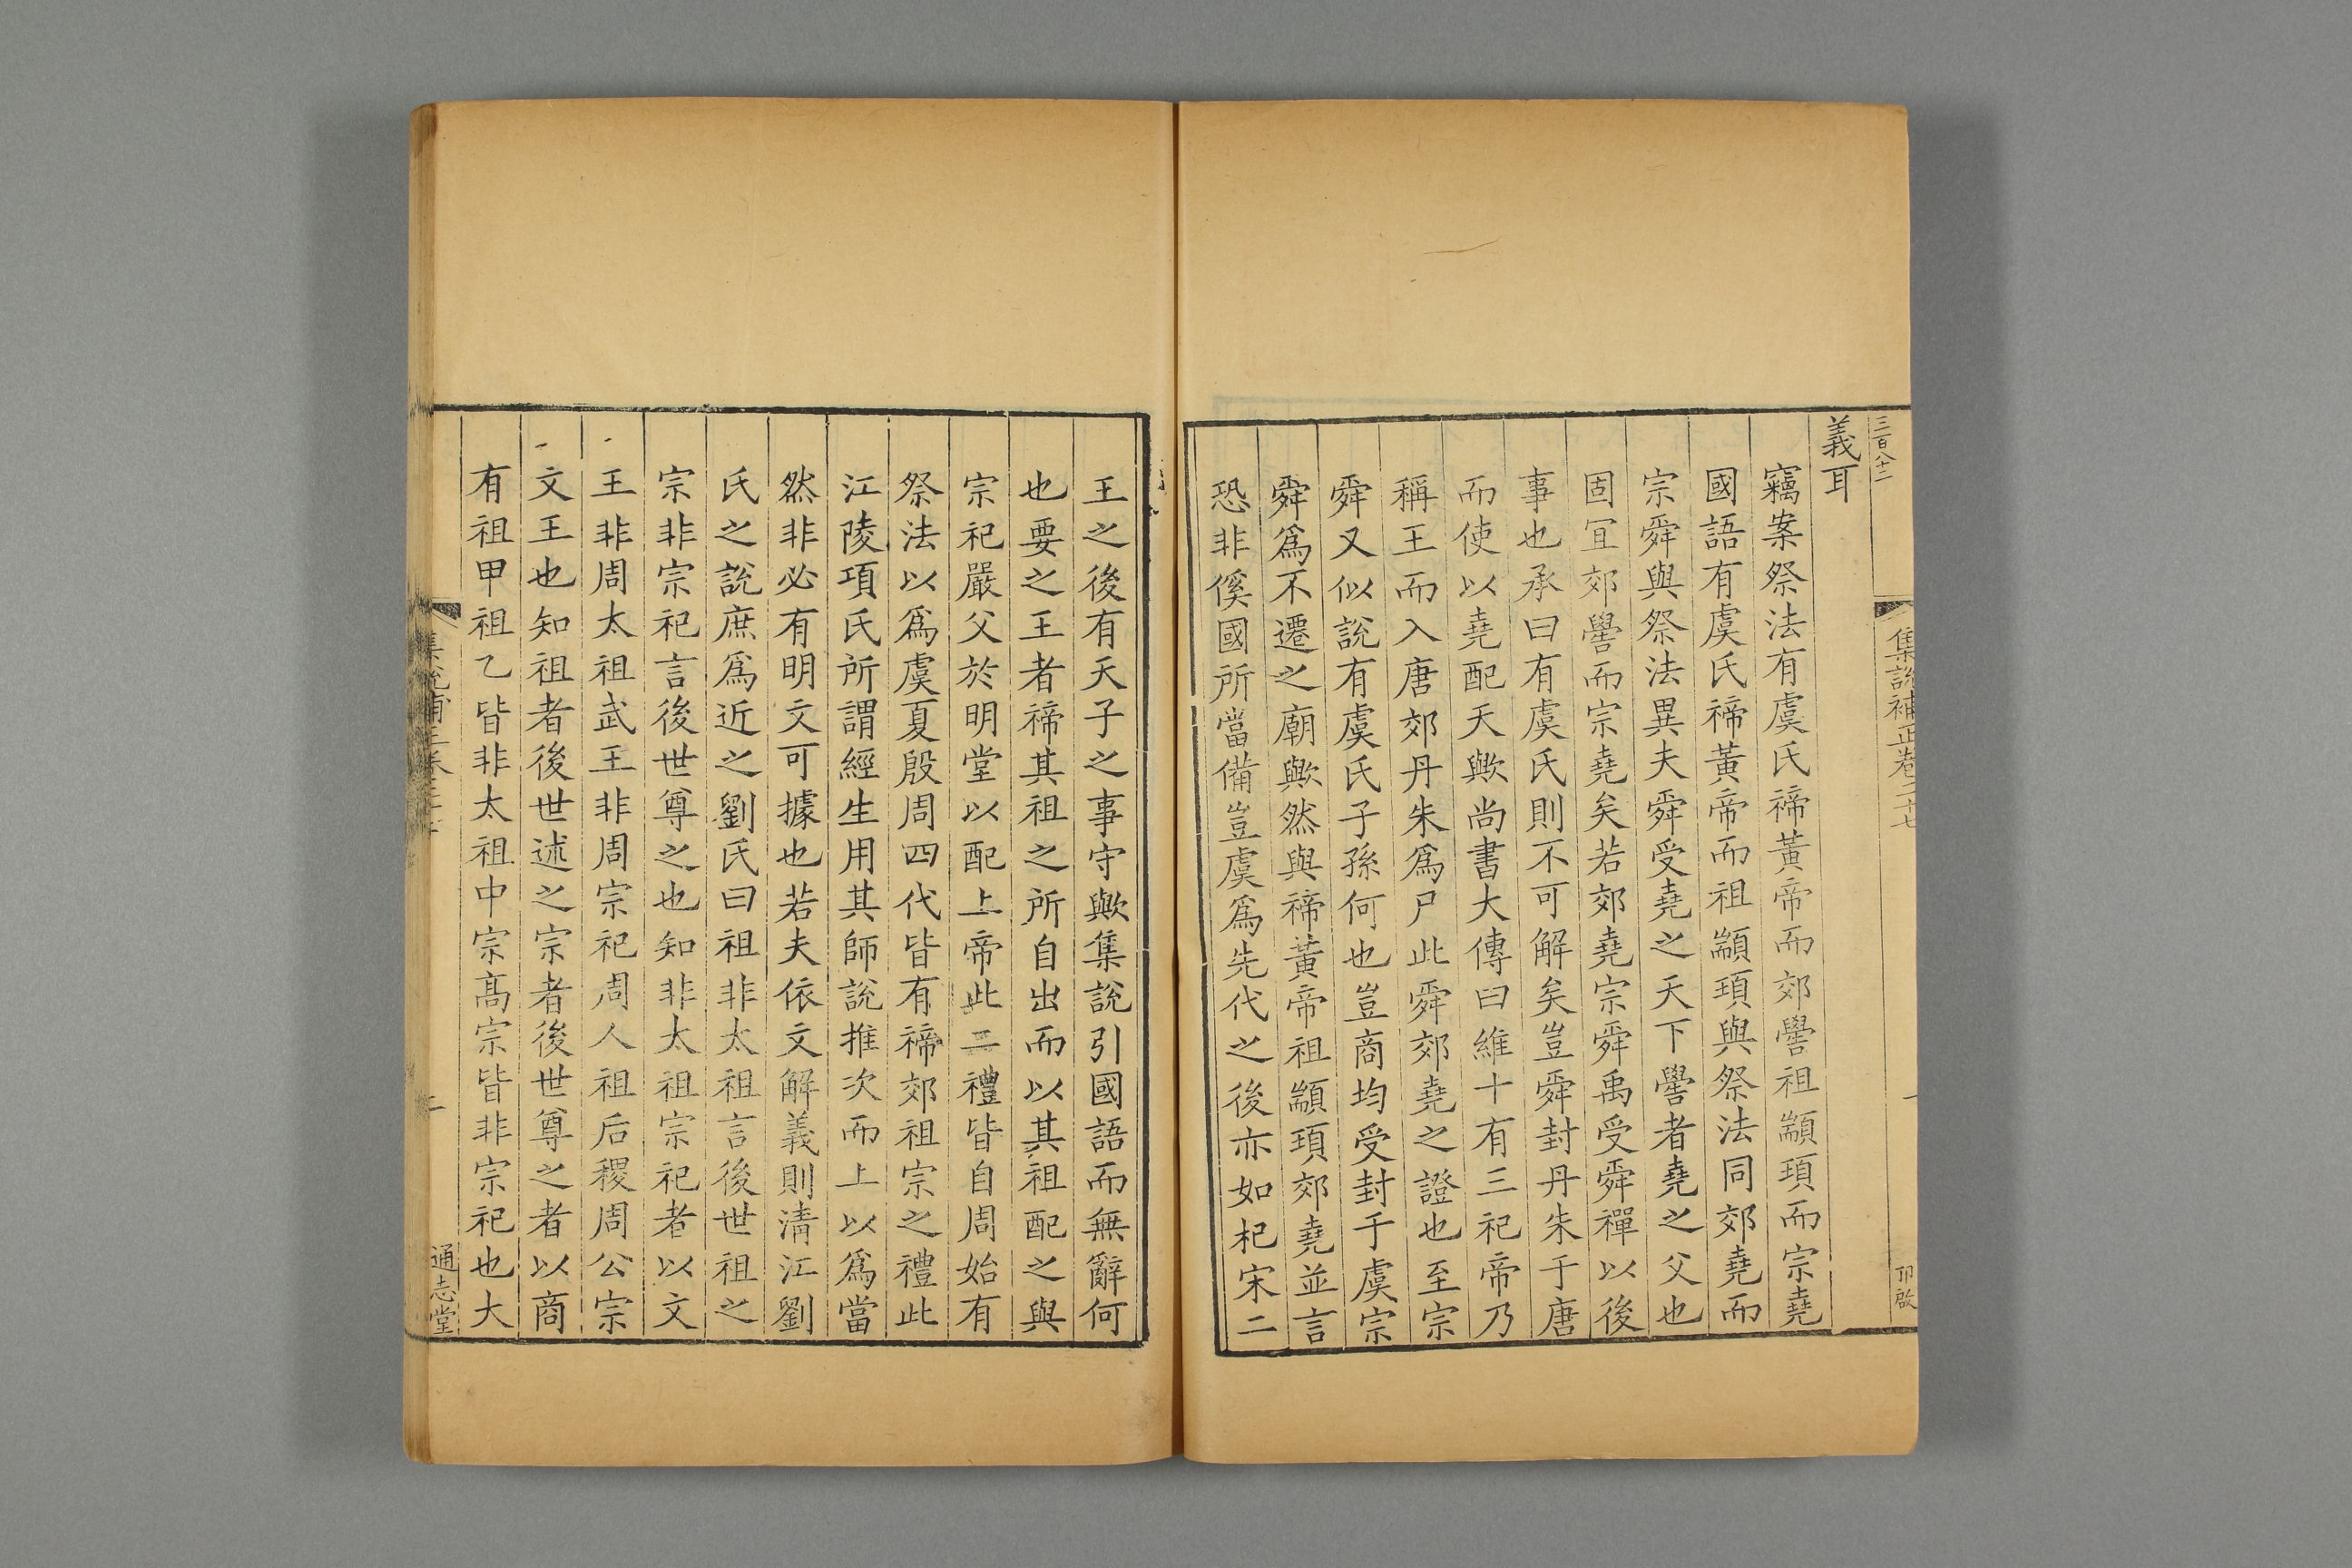 三百八十二
集說補正卷二十七
一
卬啟
義耳
竊案祭法有虞氏禘黃帝而郊嚳祖顓頊而宗堯
國語有虞氏禘黃帝而祖顓頊與祭法同郊堯而
宗舜與祭法異夫舜受堯之天下嚳者堯之父也
固宜郊嚳而宗堯矣若郊堯宗舜禹受舜禪以後
事也承曰有虞氏則不可解矣豈舜封丹朱于唐
而使以堯配天歟尚書大傳曰維十有三祀帝乃
稱王而入唐郊丹朱為尸此舜郊堯之證也至宗
舜又似說有虞氏子孫何也豈商均受封于虞宗
舜為不遷之廟歟然與禘黃帝祖顓頊郊堯並言
恐非侯國所當備豈虞為先代之後亦如杞宋二
王之後有天子之事守歟集說引國語而無辭何
也要之王者禘其祖之所自出而以其祖配之與
宗祀嚴父於明堂以配上帝此二禮皆自周始有
祭法以為虞夏殷周四代皆有禘郊祖宗之禮此
江陵項氏所謂經生用其師說推次而上以為當
然非必有明文可據也若夫依文解義則清江劉
氏之說庶為近之劉氏曰祖非太祖言後世祖之
宗非宗祀言後世尊之也知非太祖宗祀者以文
王非周太祖武王非周宗祀周人祖后稷周公宗
文王也知祖者後世述之宗者後世尊之者以商
有祖甲祖乙皆非太祖中宗高宗皆非宗祀也大
通志堂